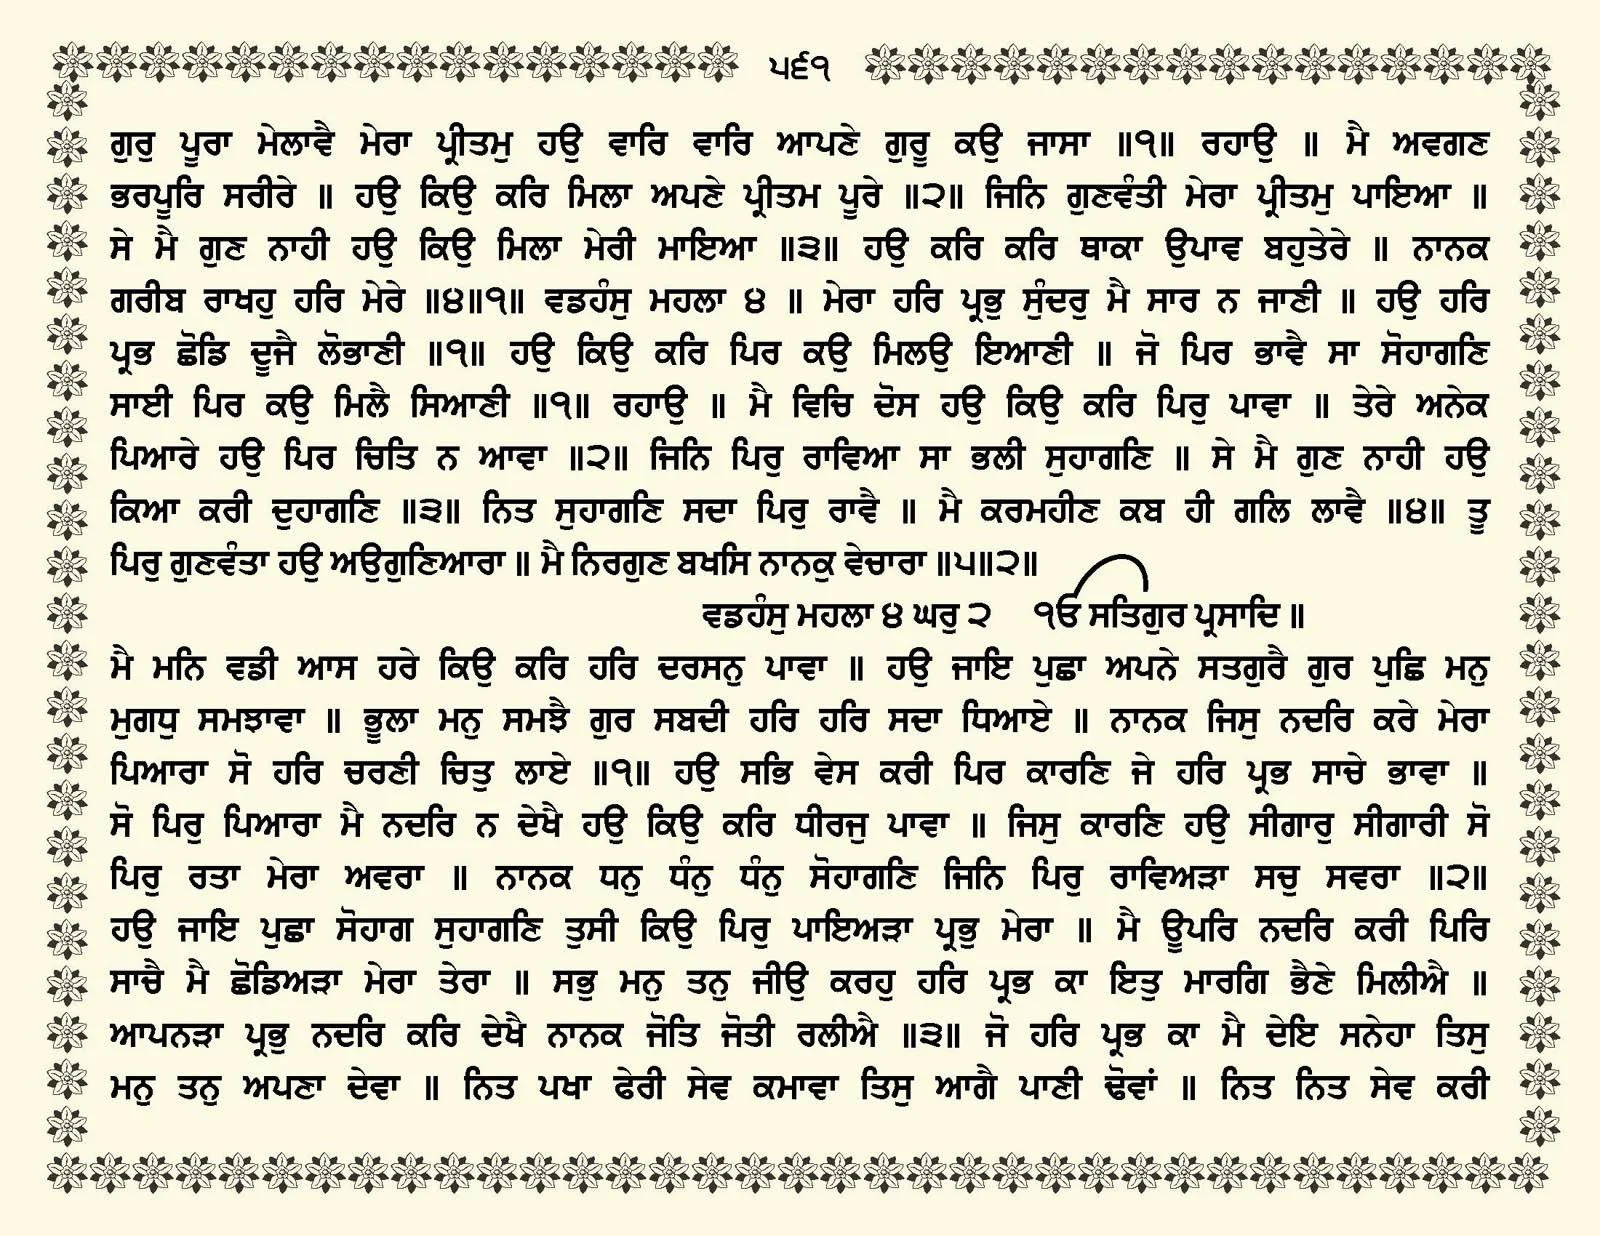 ੫੬੧
ਗੁਰੁ ਪੂਰਾ ਮੇਲਾਵੈ ਮੇਰਾ ਪ੍ਰੀਤਮੁ ਹਉ ਵਾਰਿ ਵਾਰਿ ਆਪਣੇ ਗੁਰੂ ਕਉ ਜਾਸਾ ॥੧॥ ਰਹਾਉ ॥ ਮੈ ਅਵਗਣ
ਭਰਪੂਰਿ ਸਰੀਰੇ ॥ ਹਉ ਕਿਉ ਕਰਿ ਮਿਲਾ ਅਪਣੇ ਪ੍ਰੀਤਮ ਪੂਰੇ ॥੨॥ ਜਿਨਿ ਗੁਣਵੰਤੀ ਮੇਰਾ ਪ੍ਰੀਤਮੁ ਪਾਇਆ ॥
ਸੇ ਮੈ ਗੁਣ ਨਾਹੀ ਹਉ ਕਿਉ ਮਿਲਾ ਮੇਰੀ ਮਾਇਆ ॥੩॥ ਹਉ ਕਰਿ ਕਰਿ ਥਾਕਾ ਉਪਾਵ ਬਹੁਤੇਰੇ ॥ ਨਾਨਕ
ਗਰੀਬ ਰਾਖਹੁ ਹਰਿ ਮੇਰੇ ॥੪॥੧॥ ਵਡਹੰਸੁ ਮਹਲਾ ੪ ॥ ਮੇਰਾ ਹਰਿ ਪ੍ਰਭੁ ਸੁੰਦਰੁ ਮੈ ਸਾਰ ਨ ਜਾਣੀ ॥ ਹਉ ਹਰਿ
ਪ੍ਰਭ ਛੋਡਿ ਦੂਜੈ ਲੋਭਾਣੀ ॥੧॥ ਹਉ ਕਿਉ ਕਰਿ ਪਿਰ ਕਉ ਮਿਲਉ ਇਆਣੀ ॥ ਜੋ ਪਿਰ ਭਾਵੈ ਸਾ ਸੋਹਾਗਣਿ
ਸਾਈ ਪਿਰ ਕਉ ਮਿਲੈ ਸਿਆਣੀ ॥੧॥ ਰਹਾਉ ॥ ਮੈ ਵਿਚਿ ਦੋਸ ਹਉ ਕਿਉ ਕਰਿ ਪਿਰੁ ਪਾਵਾ ॥ ਤੇਰੇ ਅਨੇਕ
ਪਿਆਰੇ ਹਉ ਪਿਰ ਚਿਤਿ ਨ ਆਵਾ ॥੨॥ ਜਿਨਿ ਪਿਰੁ ਰਾਵਿਆ ਸਾ ਭਲੀ ਸੁਹਾਗਣਿ ॥ ਸੇ ਮੈ ਗੁਣ ਨਾਹੀ ਹਉ
ਕਿਆ ਕਰੀ ਦੁਹਾਗਣਿ ॥੩॥ ਨਿਤ ਸੁਹਾਗਣਿ ਸਦਾ ਪਿਰੁ ਰਾਵੈ ॥ ਮੈ ਕਰਮਹੀਣ ਕਬ ਹੀ ਗਲਿ ਲਾਵੈ ॥੪॥ ਤੂ
ਪਿਰੁ ਗੁਣਵੰਤਾ ਹਉ ਅਉਗੁਣਿਆਰਾ ॥ ਮੈ ਨਿਰਗੁਣ ਬਖਸਿ ਨਾਨਕੁ ਵੇਚਾਰਾ ॥੫॥੨॥
ਵਡਹੰਸੁ ਮਹਲਾ ੪ ਘਰੁ ੨ ੴ ਸਤਿਗੁਰ ਪ੍ਰਸਾਦਿ ॥
ਮੈ ਮਨਿ ਵਡੀ ਆਸ ਹਰੇ ਕਿਉ ਕਰਿ ਹਰਿ ਦਰਸਨੁ ਪਾਵਾ ॥ ਹਉ ਜਾਇ ਪੁਛਾ ਅਪਨੇ ਸਤਗੁਰੈ ਗੁਰ ਪੁਛਿ ਮਨੁ
ਮੁਗਧੁ ਸਮਝਾਵਾ ॥ ਭੂਲਾ ਮਨੁ ਸਮਝੈ ਗੁਰ ਸਬਦੀ ਹਰਿ ਹਰਿ ਸਦਾ ਧਿਆਏ ॥ ਨਾਨਕ ਜਿਸੁ ਨਦਰਿ ਕਰੇ ਮੇਰਾ
ਪਿਆਰਾ ਸੋ ਹਰਿ ਚਰਣੀ ਚਿਤੁ ਲਾਏ ॥੧॥ ਹਉ ਸਭਿ ਵੇਸ ਕਰੀ ਪਿਰ ਕਾਰਣਿ ਜੇ ਹਰਿ ਪ੍ਰਭ ਸਾਚੇ ਭਾਵਾ ॥
ਸੋ ਪਿਰੁ ਪਿਆਰਾ ਮੈ ਨਦਰਿ ਨ ਦੇਖੈ ਹਉ ਕਿਉ ਕਰਿ ਧੀਰਜੁ ਪਾਵਾ ॥ ਜਿਸੁ ਕਾਰਣਿ ਹਉ ਸੀਗਾਰੁ ਸੀਗਾਰੀ ਸੋ
ਪਿਰੁ ਰਤਾ ਮੇਰਾ ਅਵਰਾ ॥ ਨਾਨਕ ਧਨੁ ਧੰਨੁ ਧੰਨੁ ਸੋਹਾਗਣਿ ਜਿਨਿ ਪਿਰੁ ਰਾਵਿਅੜਾ ਸਚੁ ਸਵਰਾ ॥੨॥
ਹਉ ਜਾਇ ਪੁਛਾ ਸੋਹਾਗ ਸੁਹਾਗਣਿ ਤੁਸੀ ਕਿਉ ਪਿਰੁ ਪਾਇਅੜਾ ਪ੍ਰਭੁ ਮੇਰਾ ॥ ਮੈ ਊਪਰਿ ਨਦਰਿ ਕਰੀ ਪਿਰਿ
ਸਾਚੈ ਮੈ ਛੋਡਿਅੜਾ ਮੇਰਾ ਤੇਰਾ ॥ ਸਭੁ ਮਨੁ ਤਨੁ ਜੀਉ ਕਰਹੁ ਹਰਿ ਪ੍ਰਭ ਕਾ ਇਤੁ ਮਾਰਗਿ ਭੈਣੇ ਮਿਲੀਐ ॥
ਆਪਨੜਾ ਪ੍ਰਭੁ ਨਦਰਿ ਕਰਿ ਦੇਖੈ ਨਾਨਕ ਜੋਤਿ ਜੋਤੀ ਰਲੀਐ ॥੩॥ ਜੋ ਹਰਿ ਪ੍ਰਭ ਕਾ ਮੈ ਦੇਇ ਸਨੇਹਾ ਤਿਸੁ
ਮਨੁ ਤਨੁ ਅਪਣਾ ਦੇਵਾ ॥ ਨਿਤ ਪਖਾ ਫੇਰੀ ਸੇਵ ਕਮਾਵਾ ਤਿਸੁ ਆਗੈ ਪਾਣੀ ਢੋਵਾਂ ॥ ਨਿਤ ਨਿਤ ਸੇਵ ਕਰੀ